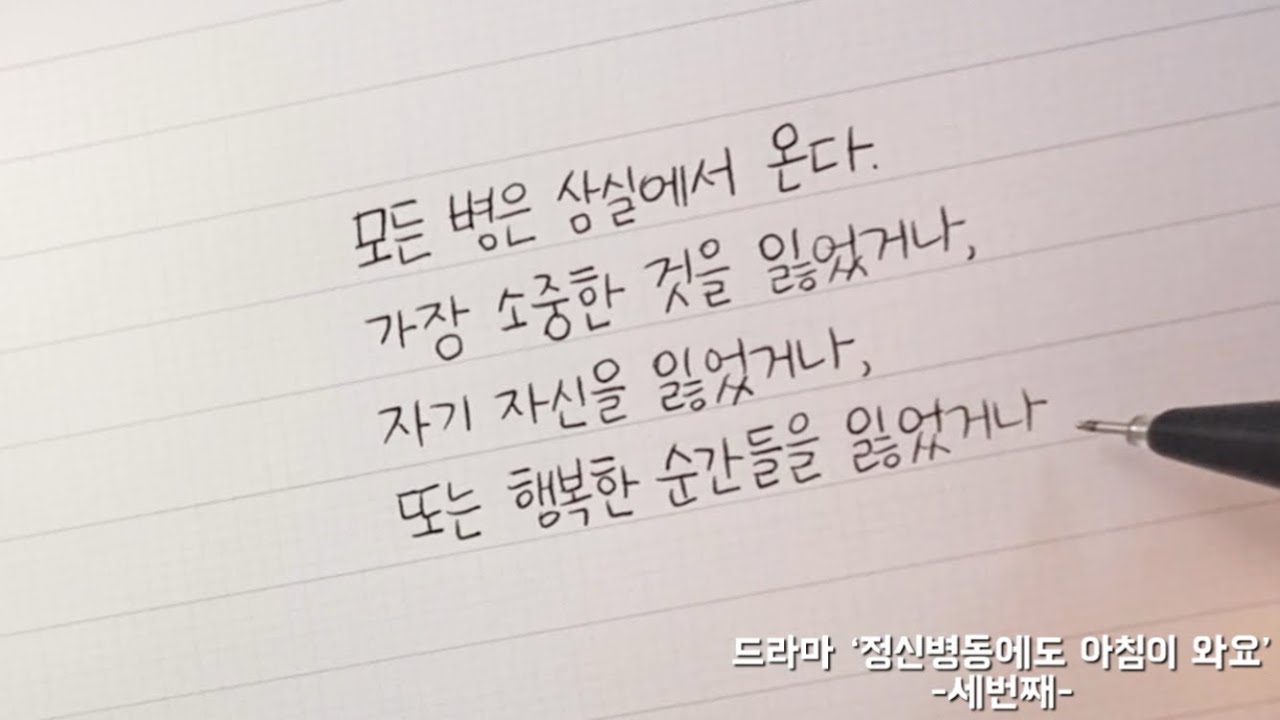 모든 병은 상실에서 온다.
가장 소중한 것을 잃었거나,
자기 자신을 잃었거나,
또는 행복한 순간들을 잃었거나
드라마 ‘정신병동에도 아침이 와요’
-세번째-